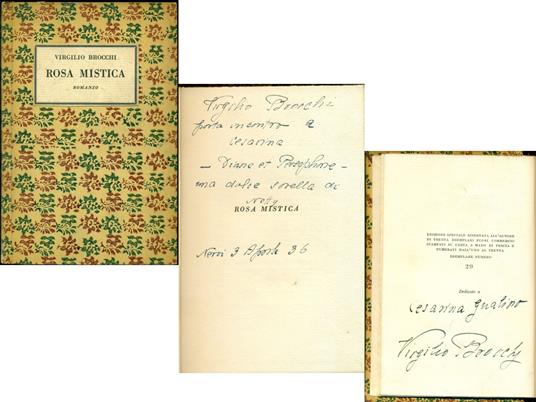 VIRGILIO BROCCHI
ROSA MISTICA
ROMANZO
Virgilio Brocchi
porta incontro a
Cesarina
– Diane et Perséphone –
una dolce sorella di
ROSA MISTICA
Nervi 3 Agosto 36
EDIZIONE SPECIALE RISERVATA ALL'AUTORE
DI TRENTA ESEMPLARI FUORI COMMERCIO
STAMPATI SU CARTA A MANO DI PESCIA E
NUMERATI DALL'UNO AL TRENTA
ESEMPLARE NUMERO
29
Dedicato a
Cesarina Gualino
Virgilio Brocchi